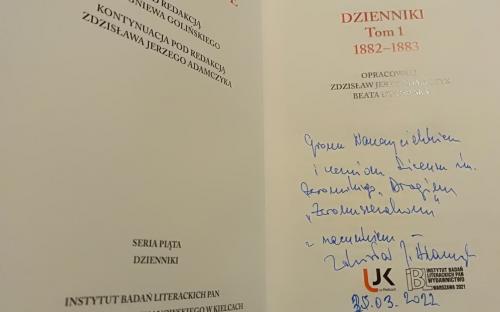 POD REDAKCJĄ
ZBIGNIEWA GOLIŃSKIEGO
KONTYNUACJA POD REDAKCJĄ
ZDZISŁAWA JERZEGO ADAMCZYKA
SERIA PIĄTA
DZIENNIKI
INSTYTUT BADAŃ LITERACKICH PAN
W KIELCACH
DZIENNIKI
Tom 1
1882–1883
OPRACOWALI
ZDZISŁAW JERZY ADAMCZYK
BEATA
Gronu Nauczycielskiemu
i uczniom Liceum im.
Żeromskiego, Drogim
„Żeromszczakom"
z szacunkiem
Zdzisław J. Adamczyk
UJK
w Kielcach
IBL
INSTYTUT BADAŃ
LITERACKICH PAN
WYDAWNICTWO
WARSZAWA 2021
25.03.2022